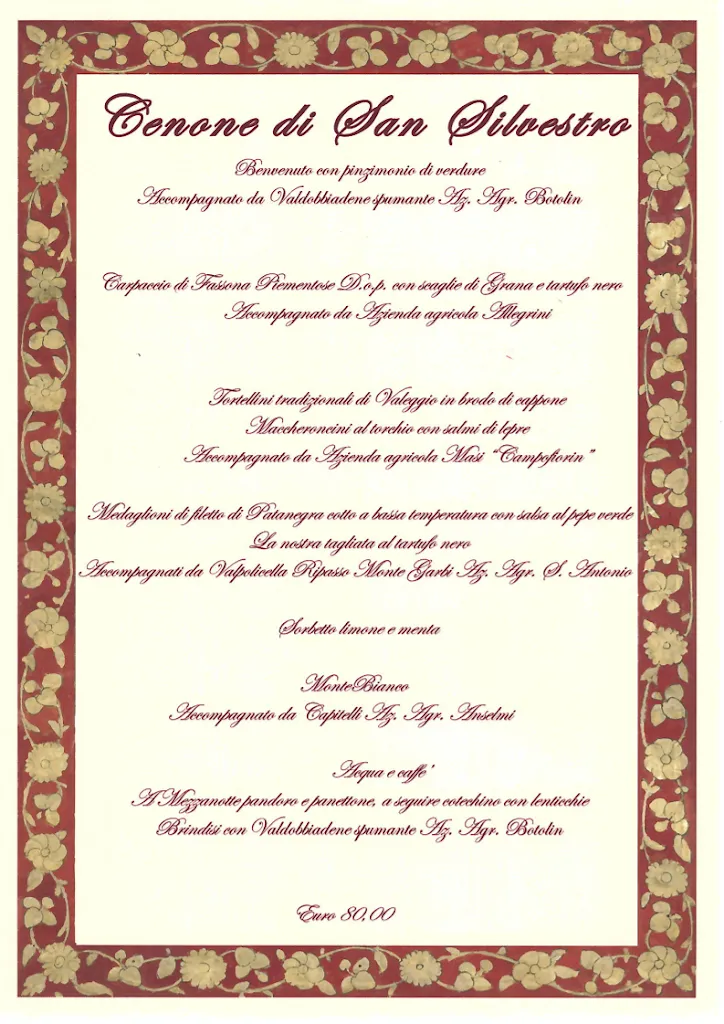 Cenone di San Silvestro
Benvenuto con pinzimonio di verdure
Accompagnato da Valdobbiadene spumante Az. Agr. Botolin
Carpaccio di Fassona Piementose D.o.p. con scaglie di Grana e tartufo nero
Accompagnato da Azienda agricola Allegrini
Tortellini tradizionali di Valeggio in brodo di cappone
Maccheroncini al torchio con salmi di lepre
Accompagnato da Azienda agricola Masi "Campofiorin"
Medaglioni di filetto di Patanegra cotto a bassa temperatura con salsa al pepe verde
La nostra tagliata al tartufo nero
Accompagnati da Valpolicella Ripasso Monte Garbi Az. Agr. S. Antonio
Sorbetto limone e menta
MonteBianco
Accompagnato da Capitelli Az. Agr. Anselmi
Acqua e caffe'
A Mezzanotte pandoro e panettone, a seguire cotechino con lenticchie
Brindisi con Valdobbiadene spumante Az. Agr. Botolin
Euro 80,00